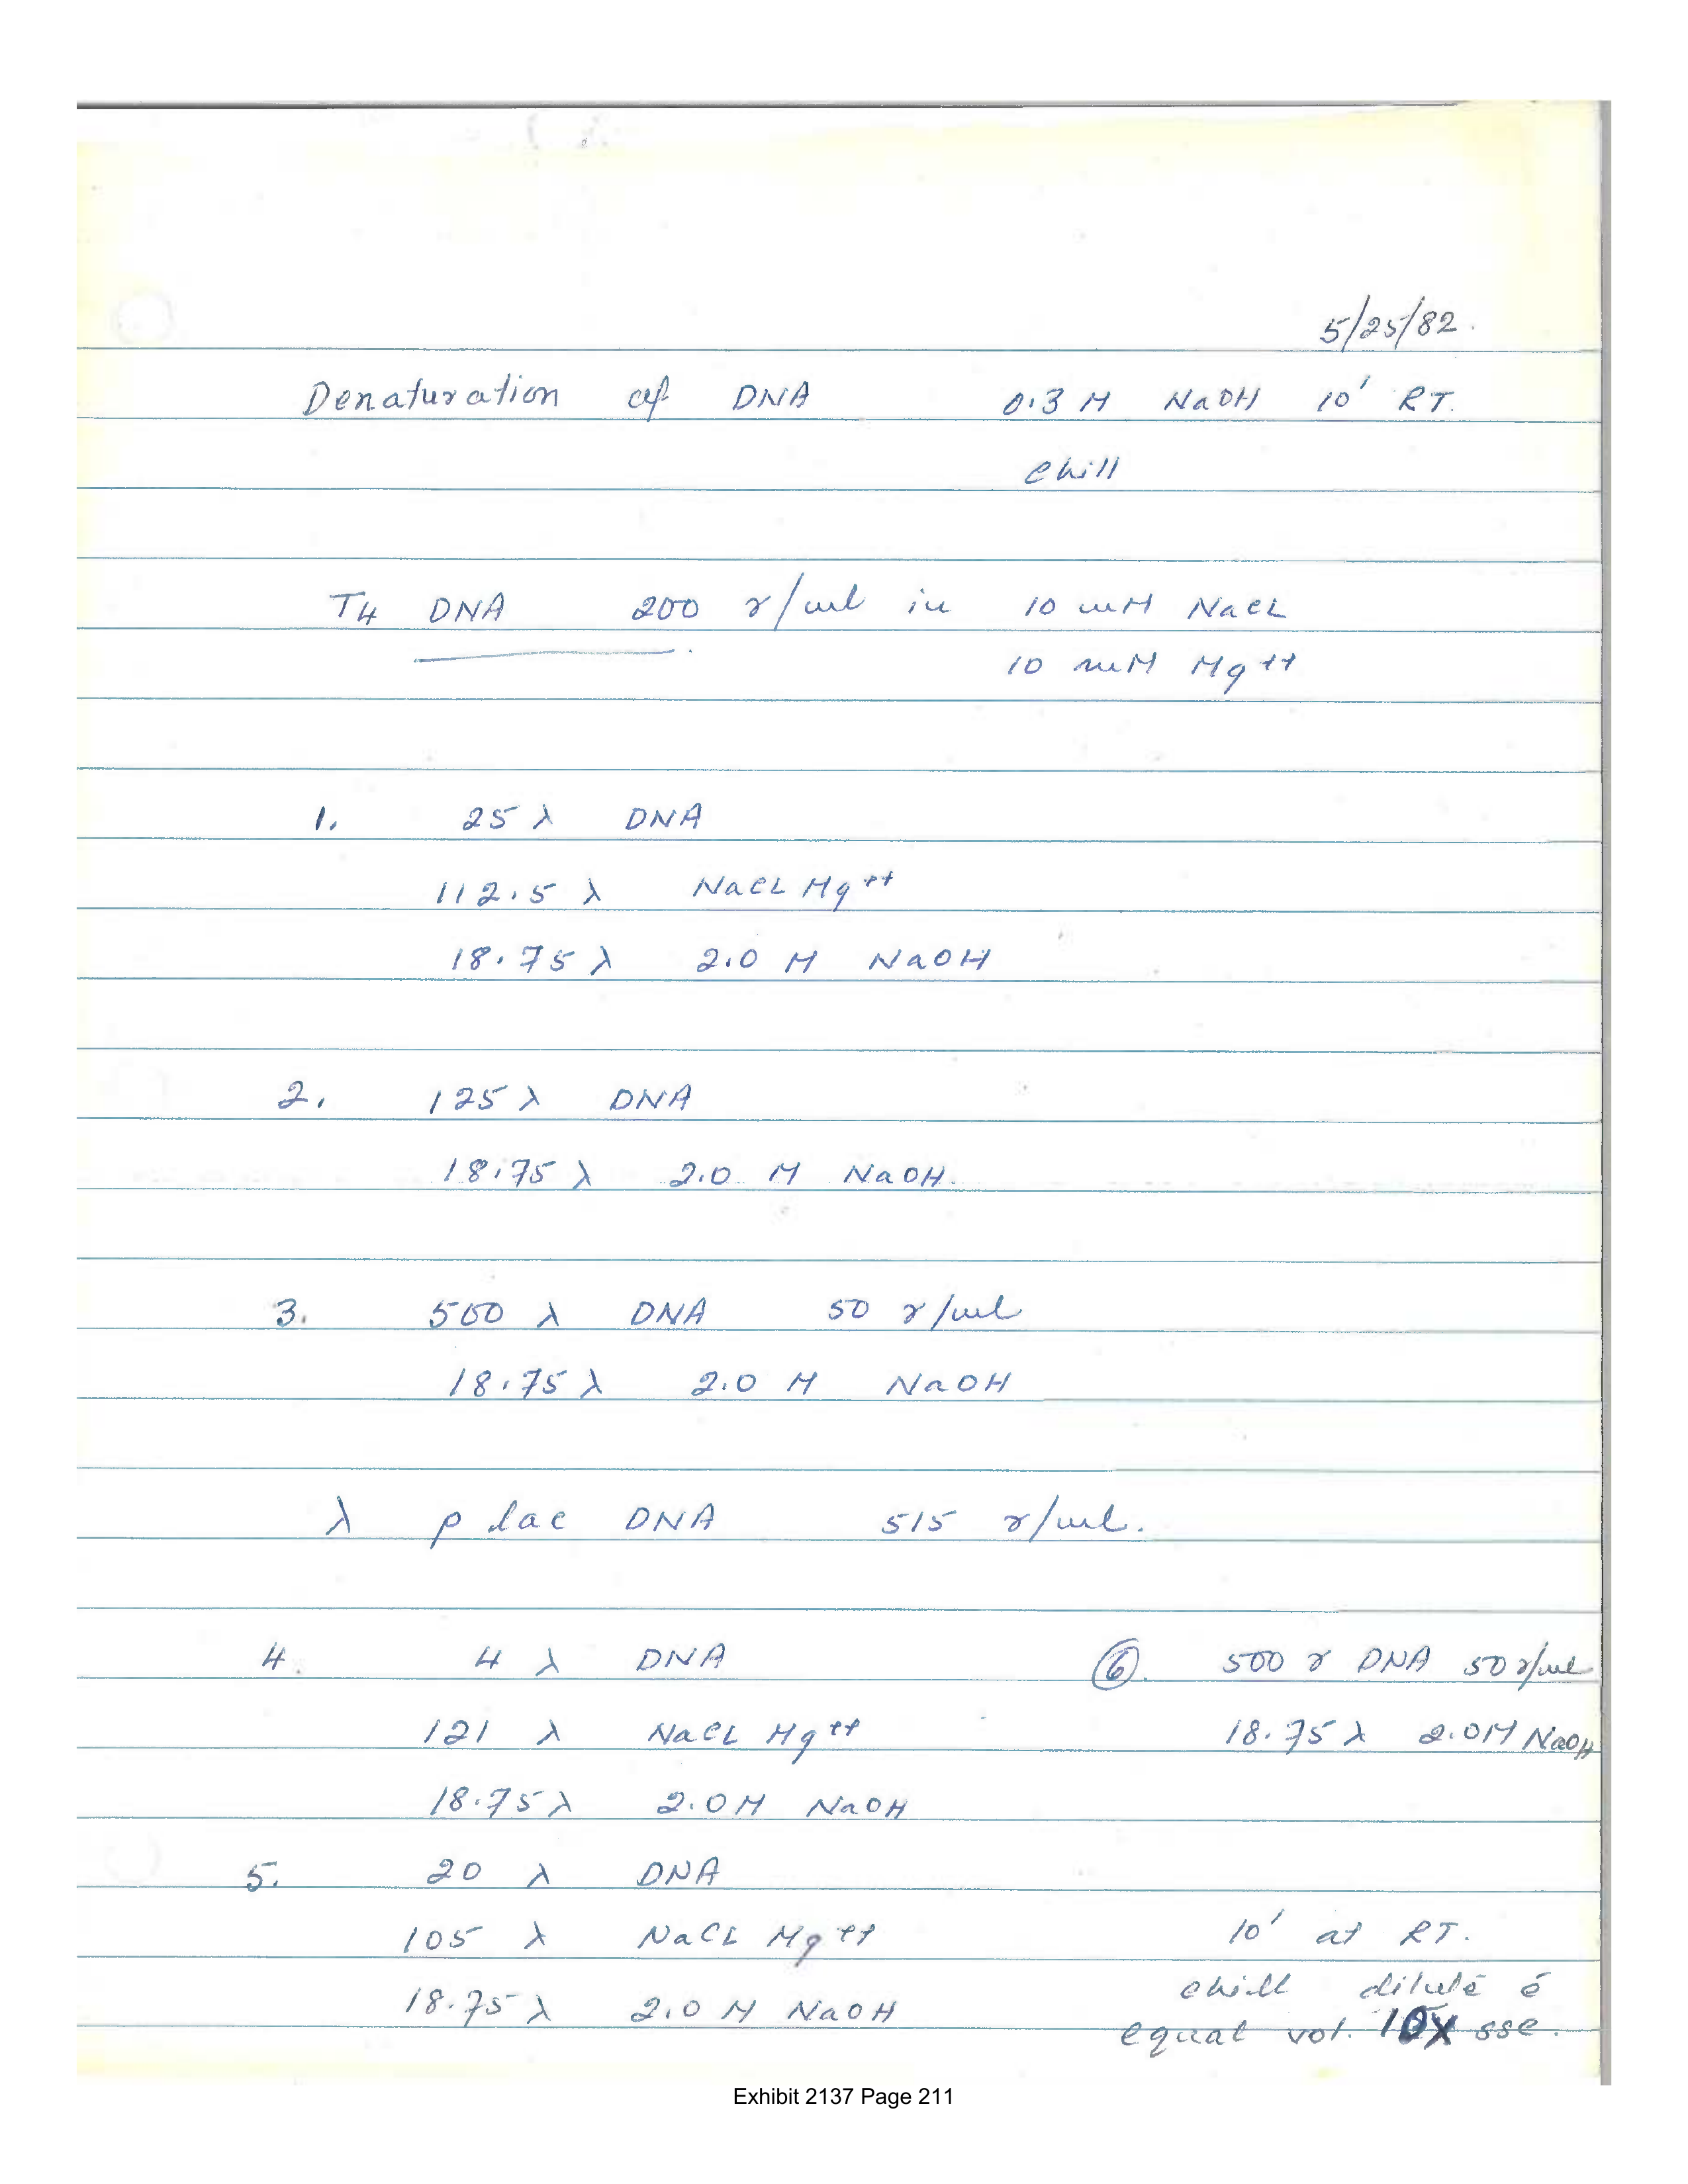 5/25/82.
Denaturation of DNA 0.3 M NaOH 10' RT.
Chill
T4 DNA 200 γ/ml in 10 mM NaCl
10 mM Mg++
1. 25 λ DNA
112.5 λ NaCl Mg++
18.75 λ 2.0 M NaOH
2. 125 λ DNA
18.75 λ 2.0 M NaOH.
3. 500 λ DNA 50 γ/ml
18.75 λ 2.0 M NaOH
λ p lac DNA 515 γ/ml.
4. 4 λ DNA
121 λ NaCl Mg++
18.75 λ 2.0 M NaOH
5. 20 λ DNA
105 λ NaCl Mg++
18.75 λ 2.0 M NaOH
6. 500 γ DNA 50 γ/ml
18.75 λ 2.0 M NaOH
10' at RT.
chill dilute c̄
equal vol. 10X SSC.
Exhibit 2137 Page 211